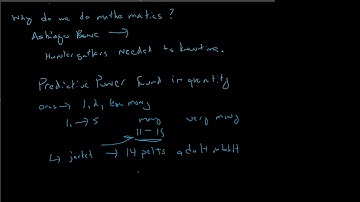 Why do we do mathematics?
Ashango Bone →
Hunter gatherers needed to know time.
Predictive Power found in quantity
→ 1, 2, many
1, → 5 many very many
11 - 15
↳ jacket → 14 pelts adult rabbit